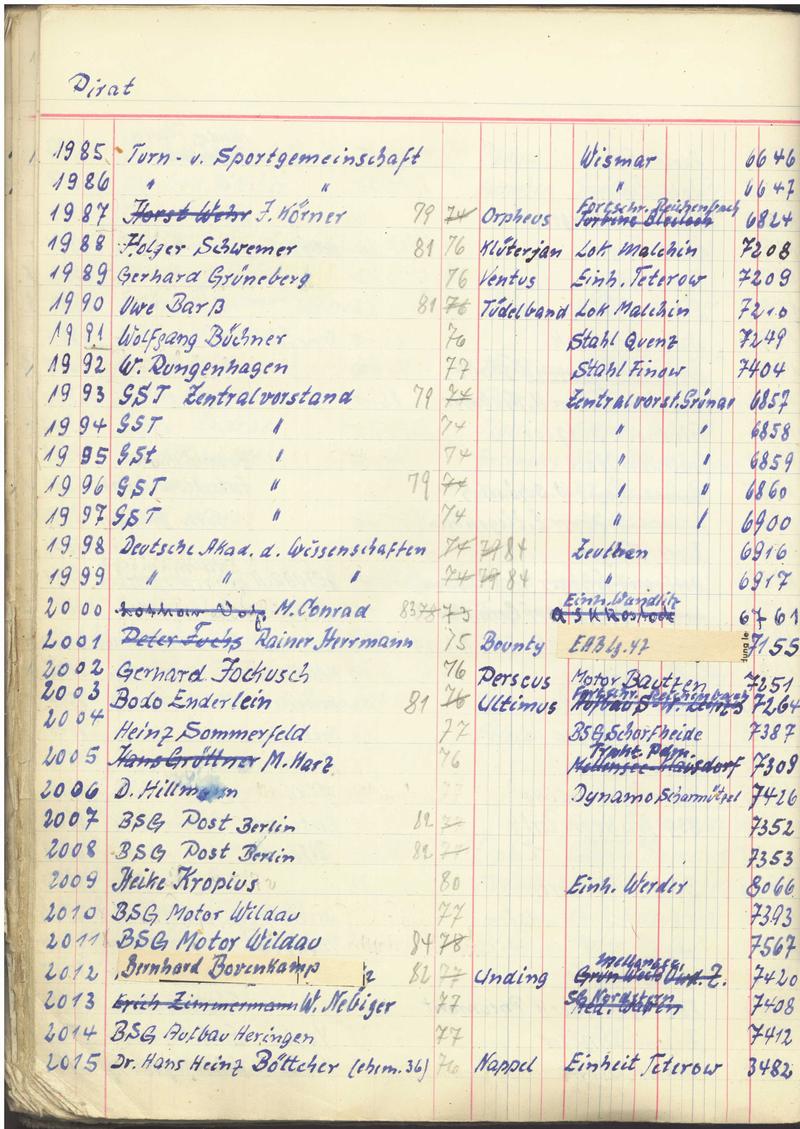 Pirat
1985 Turn- u. Sportgemeinschaft Wismar 6646
1986 " " " 6647
1987 Horst Wehr J. Körner 79 74 Orpheus Fortschr. Reichenbach 6824
1988 Holger Schwemer 81 76 Klüterjan Lok Malchin 7208
1989 Gerhard Grüneberg 76 Ventus Einh. Teterow 7209
1990 Uwe Barß 81 76 Tüdelband Lok Malchin 7210
1991 Wolfgang Büchner 76 Stahl Quenz 7249
1992 W. Rungenhagen 77 Stahl Finow 7404
1993 GST Zentralvorstand 79 74 Zentralvorst. Grünau 6857
1994 GST " 74 " " 6858
1995 GSt " 74 " " 6859
1996 GST " 79 74 " " 6860
1997 GST " 74 " " 6900
1998 Deutsche Akad. d. Wissenschaften 74 79 84 Zeuthen 6916
1999 " " " 74 79 84 " 6917
2000 M. Conrad 83 78 73 Einh. Wandlitz ASK Rostock 6761
2001 Peter Fuchs Rainer Herrmann 75 Bounty EAB Lg. 47 7155
2002 Gerhard Jockusch 76 Perseus Motor Bautzen 7251
2003 Bodo Enderlein 81 76 Ultimus Fortschr. Reichenbach 7264
2004 Heinz Sommerfeld 77 BSG Schorfheide 7387
2005 Hans Gröttner M. Harz 76 Pdm. 7309
2006 D. Hillmann 77 Dynamo Scharmützel 7426
2007 BSG Post Berlin 82 77 7352
2008 BSG Post Berlin 82 77 7353
2009 Heike Kropius 80 Einh. Werder 8066
2010 BSG Motor Wildau 77 7393
2011 BSG Motor Wildau 84 78 7567
2012 Bernhard Bovenkamp 82 77 Unding Mellensee 7420
2013 Erich Zimmermann W. Nebiger 77 SG Nordstern 7408
2014 BSG Aufbau Heringen 77 7412
2015 Dr. Hans Heinz Böttcher (ehem. 36) 76 Nappel Einheit Teterow 3482